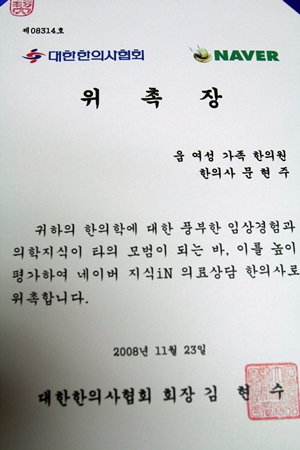 제08314호
대한한의사협회 NAVER
위 촉 장
움 여성 가족 한의원
한의사 문 현 주
귀하의 한의학에 대한 풍부한 임상경험과
의학지식이 타의 모범이 되는 바, 이를 높이
평가하여 네이버 지식iN 의료상담 한의사로
위촉합니다.
2008년 11월 23일
대한한의사협회 회장 김 현 수